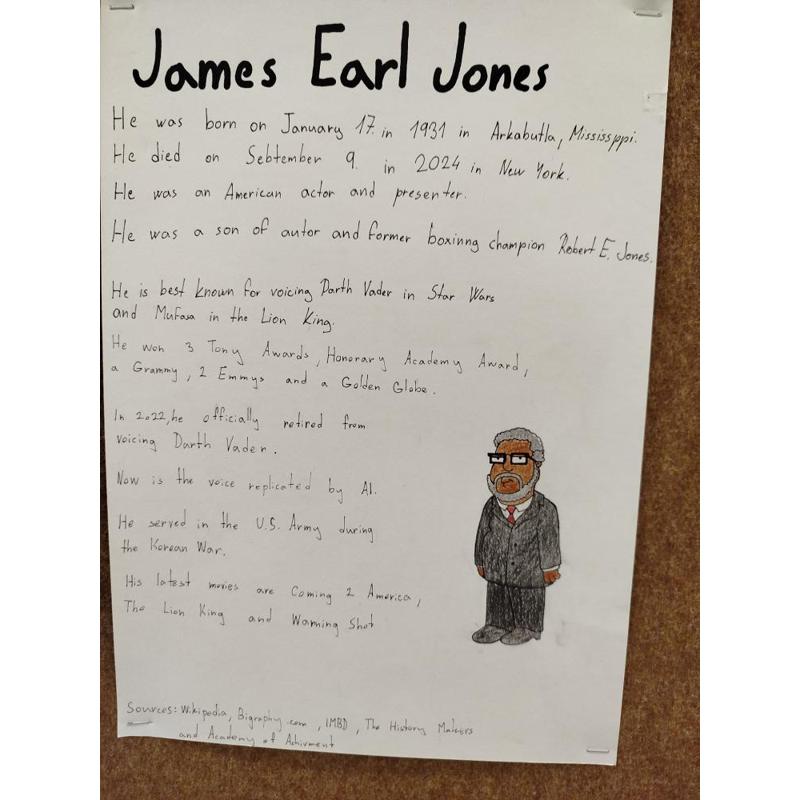 James Earl Jones
He was born on January 17. in 1931 in Arkabutla, Mississppi.
He died on Sebtember 9. in 2024 in New York.
He was an American actor and presenter.
He was a son of autor and former boxinng champion Robert E. Jones.
He is best known for voicing Darth Vader in Star Wars
and Mufasa in the Lion King.
He won 3 Tony Awards, Honorary Academy Award,
a Grammy, 2 Emmys and a Golden Globe.
In 2022, he officially retired from
voicing Darth Vader.
Now is the voice replicated by AI.
He served in the U.S. Army during
the Korean War.
His latest movies are Coming 2 America,
The Lion King and Warning Shot
Sources: Wikipedia, Bigraphy.com, IMBD, The History Makers
and Academy of Achivment